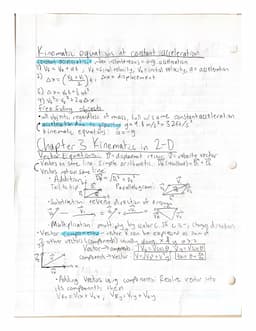 Kinematic equations at constant acceleration
constant acceleration: instantaneous = avg. acceleration
1) Vf = V0 + at, Vf = final velocity, V0 = initial velocity, a = acceleration
2) Δx = (V0 + Vf / 2) t, Δx = displacement
3) Δx = V0t + ½at²
4) Vf² = V0² + 2aΔx
Free falling objects
• all objects, regardless of mass, fall w/ same constant acceleration
• acceleration due to gravity = g = 9.8 m/s² = 32 ft/s²
• kinematic equations: a = -g
Chapter 3 Kinematics in 2-D
Vector Equations: D = displacement vector, V = velocity vector
• Vectors on same line: simple arithmetic.
• Vectors not on same line:
• Addition:
Tail to tip
Parallelogram:
• Subtraction: reverse direction of
• Multiplication: multiply by scalar c. If c is -, change direction
• Vector Components - vector V can be expressed as sum of
other vectors (components) usually along x & y axes
Vector → components
components → vector
• Adding Vectors using components: Resolve vector into
its components then
VRx = V1x + V2x, VRy = V1y + V2y